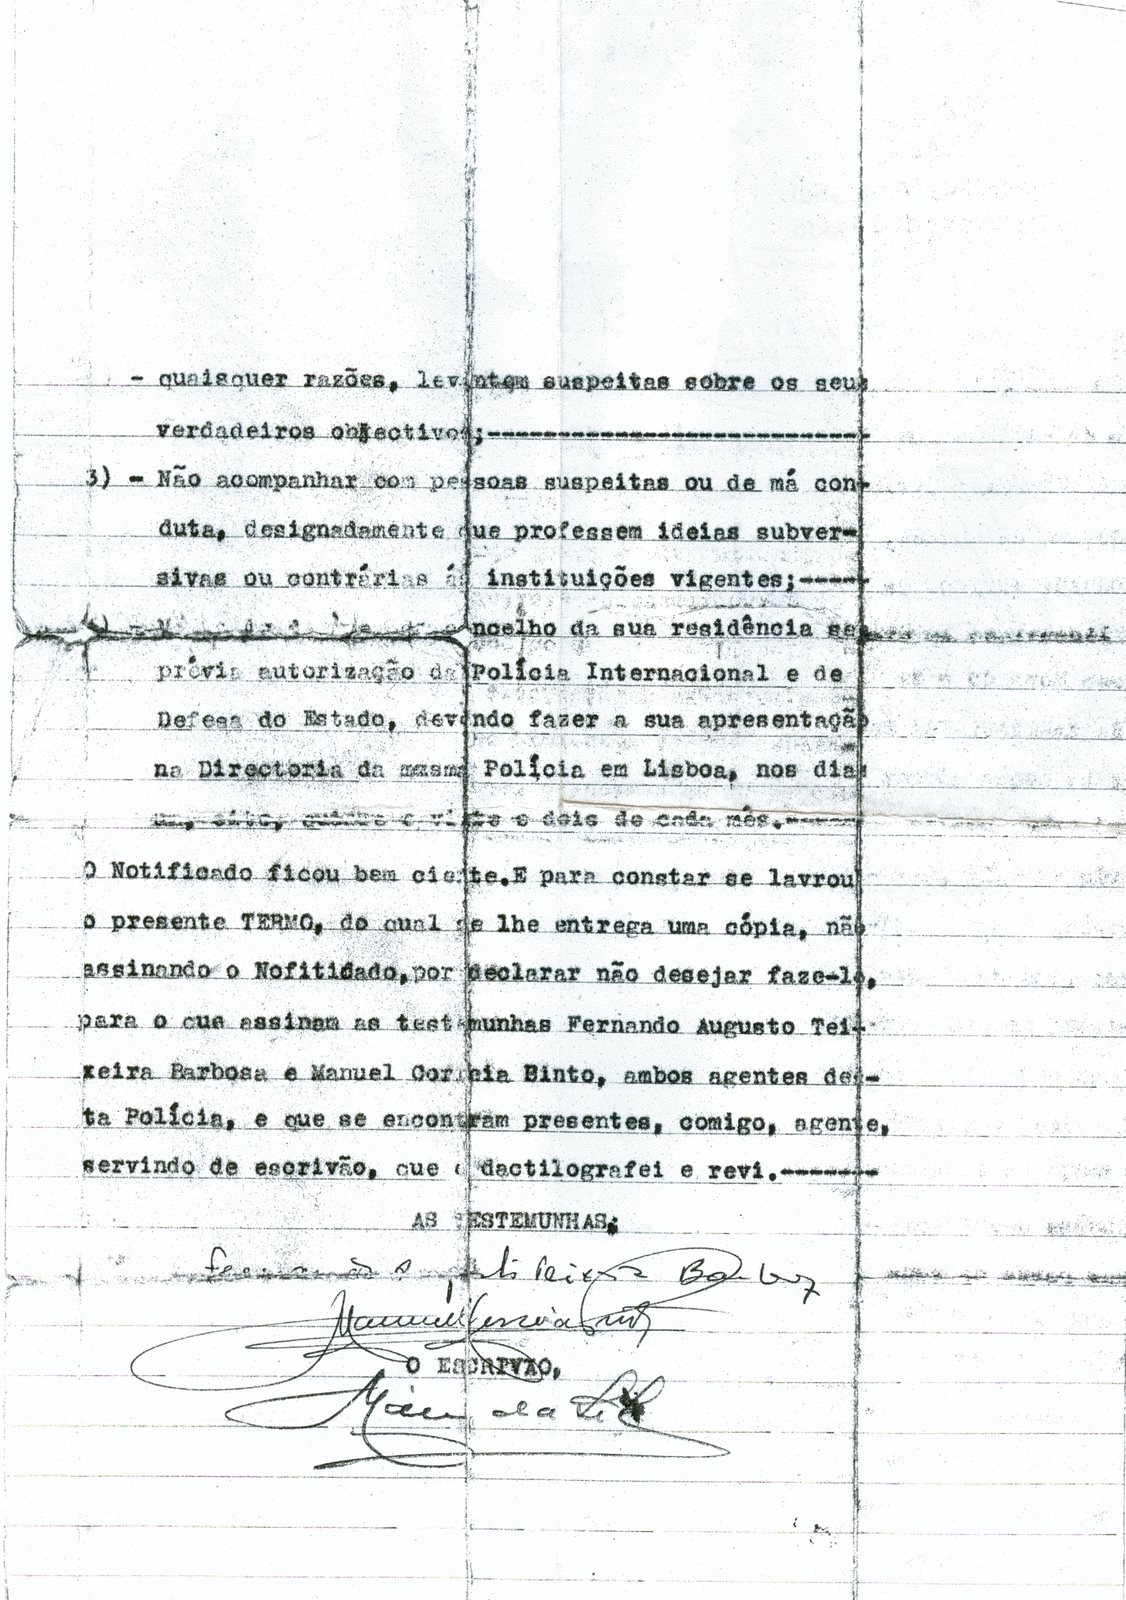 - quaisquer razões, levantem suspeitas sobre os seus
verdadeiros objectivos;------------------------------
3) - Não acompanhar com pessoas suspeitas ou de má con-
duta, designadamente que professem ideias subver-
sivas ou contrárias ás instituições vigentes;-----
concelho da sua residência sem
prévia autorização da Polícia Internacional e de
Defesa do Estado, devendo fazer a sua apresentação
na Directoria da mesma Polícia em Lisboa, nos dias
um, oito, quinze e vinte e deis de cada mês.-----
O Notificado ficou bem ciente.E para constar se lavrou
o presente TERMO, do qual se lhe entrega uma cópia, não
assinando o Nofitidado,por declarar não desejar faze-lo,
para o que assinam as testemunhas Fernando Augusto Tei-
xeira Barbosa e Manuel Correia Binto, ambos agentes des-
ta Polícia, e que se encontram presentes, comigo, agente,
servindo de escrivão, que o dactilografei e revi.-------
AS TESTEMUNHAS;
Fernando Teixeira Barbosa
Manuel Correia
O ESCRIVÃO,
da